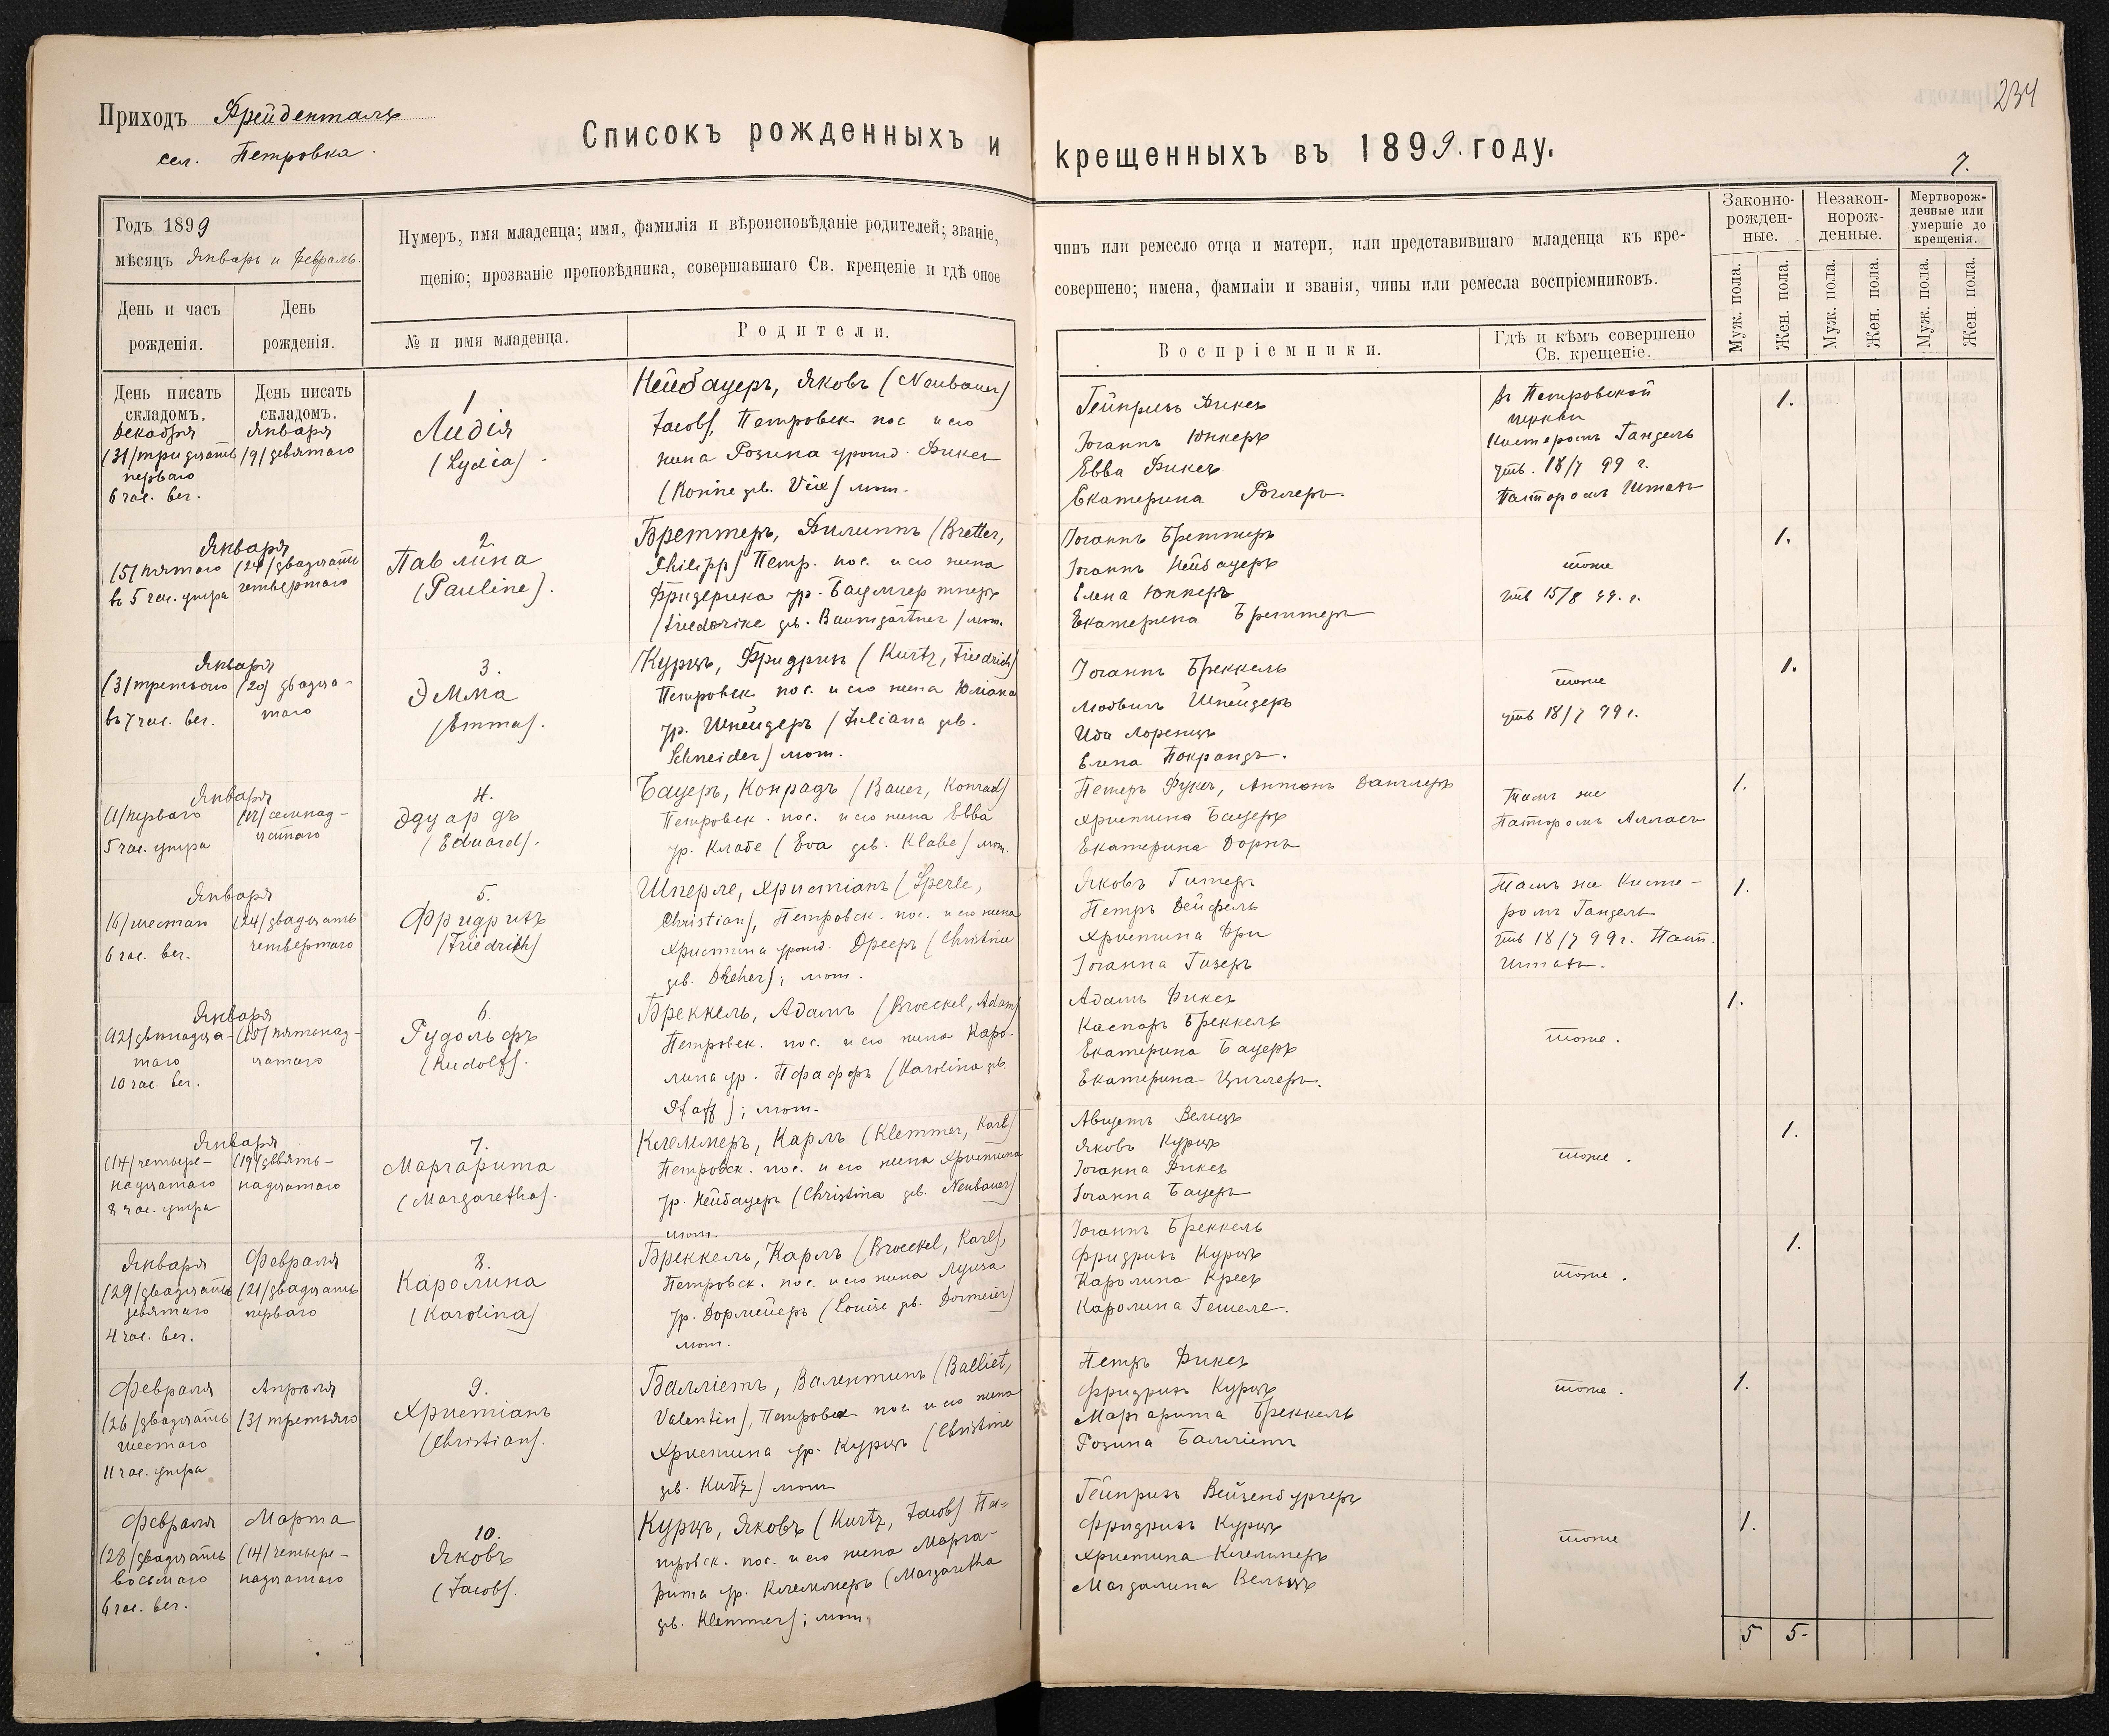 Приходъ Фрейденталь
сел. Петровка.
Списокъ рожденныхъ и крещенныхъ въ 1899. году.
234
7.
Годъ 1899
мѣсяцъ Январь и Февраль.
День и часъ
рожденія.
День
рожденія.
Нумеръ, имя младенца; имя, фамилія и вѣроисповѣданіе родителей; званіе,
щенію; прозваніе проповѣдника, совершавшаго Св. крещеніе и гдѣ оное
№ и имя младенца.
Родители.
чинъ или ремесло отца и матери, или представившаго младенца къ кре-
совершено; имена, фамиліи и званія, чины или ремесла воспріемниковъ.
Воспріемники.
Гдѣ и кѣмъ совершено
Св. крещеніе.
Законно-
рожден-
ные.
Незакон-
норож-
денные.
Мертворож-
денные или
умершіе до
крещенія.
Муж. пола.
Жен. пола.
Муж. пола.
Жен. пола.
Муж. пола.
Жен. пола.
День писать
складомъ.
День писать
складомъ.
Декабря
(31) тридцать
перваго
6 час. веч.
Января
(9) девятаго
1
Лидія
(Lydia).
Нейбауеръ, Яковъ (Neubauer)
Jacob), Петровск. пос. и его
жена Розина урожд. Фиксъ
(Rosine gb. Vix) лют.
Гейнрихъ Фиксъ
Іоганнъ Юнкеръ
Евва Фиксъ
Екатерина Роглеръ.
Въ Петровской
церкви
Кистеромъ Гандель
утв. 18/7 99 г.
Пасторомъ Штахъ
1.
Января
(5) пятаго
въ 5 час. утра
(24) двадцать
четвертаго
2.
Павлина
(Pauline).
Бреттеръ, Филиппъ (Bretter,
Philipp) Петр. пос. и его жена
Фридерика ур. Баумгертнеръ
(Friederike gb. Baumgärtner) лют.
Іоганнъ Бреттеръ
Іоганнъ Нейбауеръ
Елена Юнкеръ
Екатерина Бреттеръ
тоже
утв 15/8 99. г.
1.
Января
(3) третьяго
въ 7 час. веч.
(20) двадца-
таго
3.
Эмма
(Emma).
Курцъ, Фридрихъ (Kurtz, Friedrich)
Петровск. пос. и его жена Юліана
ур. Шнейдеръ (Juliana gb.
Schneider) лют.
Іоганнъ Бреккель
Людвигъ Шнейдеръ
Ида Лоренцъ
Елена Покрандъ.
тоже
утв 18/7 99 г.
1.
Января
(1) перваго
5 час. утра
(17) семнад-
цатаго
4.
Эдуардъ
(Eduard).
Бауеръ, Конрадъ (Bauer, Konrad)
Петровск. пос. и его жена Евва
ур. Клабе (Eva gb. Klabe) лют.
Петеръ Фуксъ, Антонъ Данглеръ
Христина Бауеръ
Екатерина Дорнъ
Тамъ же
Пасторомъ Аллаесъ
1.
Января
(6) шестаго
6 час. веч.
(24) двадцать
четвертаго
5.
Фридрихъ
(Friedrich)
Шперле, Христіанъ (Sperle,
Christian), Петровск. пос. и его жена
Христина урожд. Дрееръ (Christine
gb. Dreher); лют.
Яковъ Гитеръ
Петръ Дейфель
Христина Фри
Іоганна Гизеръ
Тамъ же Кисте-
ромъ Гандель
утв 18/7 99 г. Паст.
Штахъ.
1.
Января
(12) двѣнадца-
таго
10 час. веч.
(15) пятьнад-
цатаго
6.
Рудольфъ
(Rudolf).
Бреккель, Адамъ (Broeckel, Adam)
Петровск. пос. и его жена Каро-
лина ур. Пфаффъ (Karolina gb.
Pfaff); лют.
Адамъ Фиксъ
Каспаръ Бреккель
Екатерина Бауеръ
Екатерина Циглеръ.
тоже.
1.
Января
(14) четыре-
надцатаго
8 час. утра
(19) девять-
надцатаго
7.
Маргарита
(Margaretha).
Клеммеръ, Карлъ (Klemmer, Karl)
Петровск. пос. и его жена Христина
ур. Нейбауеръ (Christina gb. Neubauer)
лют.
Августъ Вельцъ
Яковъ Курцъ
Іоганна Фиксъ
Іоганна Бауеръ
тоже.
1.
Января
(29) двадцать
девятаго
4 час. веч.
Февраля
(21) двадцать
перваго
8.
Каролина
(Karolina)
Бреккель, Карлъ (Broeckel, Karl),
Петровск. пос. и его жена Луиза
ур. Дормейеръ (Louise gb. Dormeier)
лют.
Іоганнъ Бреккель
Фридрихъ Курцъ
Каролина Кресъ
Каролина Гешеле.
тоже.
1.
Февраля
(26) двадцать
шестаго
11 час. утра
Апрѣля
(3) третьяго
9.
Христіанъ
(Christian).
Балліетъ, Валентинъ (Balliet,
Valentin), Петровск пос и его жена
Христина ур. Курцъ (Christine
gb. Kurtz) лют
Петръ Фиксъ
Фридрихъ Курцъ
Маргарита Бреккель
Розина Балліетъ
тоже.
1.
Февраля
(28) двадцать
восьмаго
6 час. веч.
Марта
(14) четыре-
надцатаго
10.
Яковъ
(Jacob).
Курцъ, Яковъ (Kurtz, Jacob) Пе-
тровск. пос. и его жена Марга-
рита ур. Клеммеръ (Margaretha
gb. Klemmer); лют.
Гейнрихъ Вейзенбургеръ
Фридрихъ Курцъ
Христина Клеммеръ
Магдалина Вельцъ
тоже
1.
5 5.